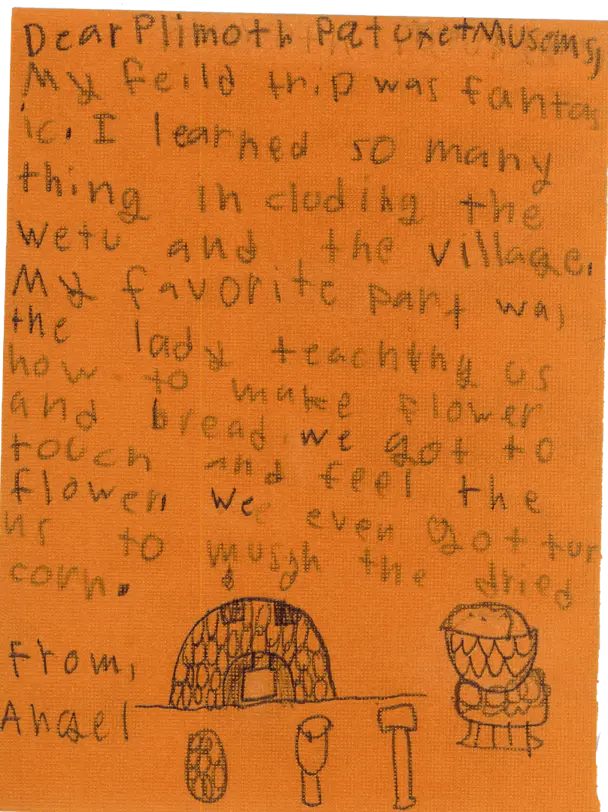 Dear Plimoth Patuxet Musems,
My feild trip was fantas
ic. I learned so many
thing incloding the
wetu and the village.
My favorite part was
the lady teaching us
how to make flower
and bread. we got to
touch and feel the
flower. We even got tur
ns to mush the dried
corn.
From,
Angel